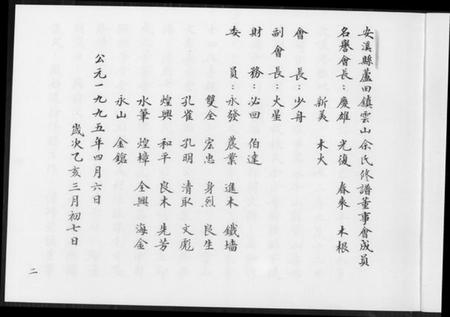 安溪縣蘆田鎮雲山余氏修譜董事會成員
名譽會長：慶雄 光復 春來 木根
新美 木火
會長：少舟
副會長：火星
財務：必回 伯達
委員：永發 農業 進木 鐵墻
雙全 宏忠 身烈 良生
孔雀 孔明 清取 文彪
煌興 和平 良木 先芳
水筆 煌樟 全興 海金
永山 金鎞
公元一九九五年四月六日
歲次乙亥三月初七日
二